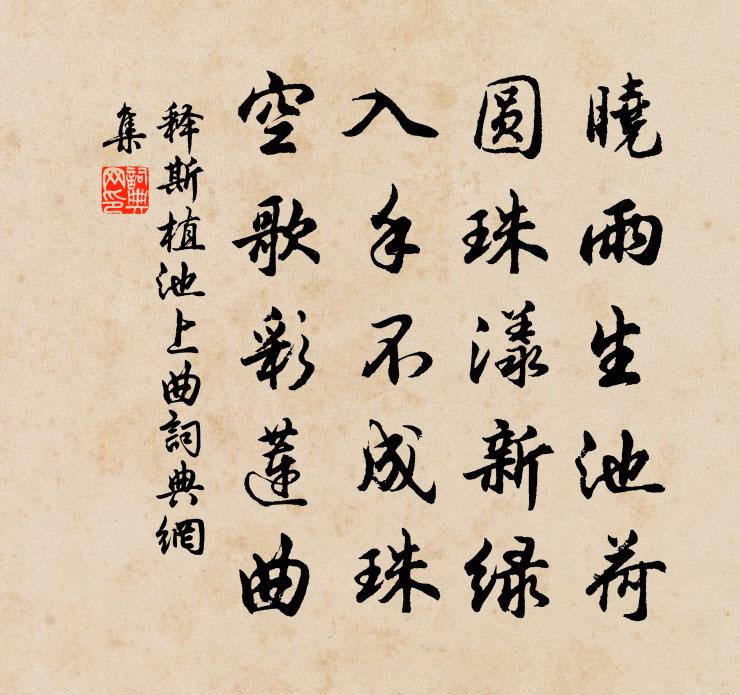 曉雨生池荷
圆珠漾新绿
入手不成珠
空歌彩蓮曲
释斯植池上曲詞典網
集
詞典网印